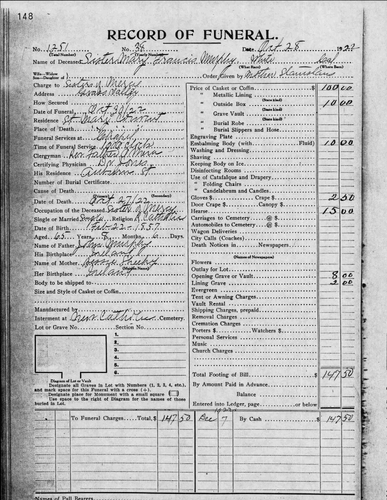 148
RECORD OF FUNERAL.
No. 1251 No. 38 Oct 28 1922
(Total Number) (Yearly Number)
Name of Deceased Sister Mary Francis Murphy White
(What Race) (Where Born)
Wife-Widow
Son-Daughter of Order Given by Mother
Charge to Sisters of Mercy
Address Grass Valley
How Secured
Date of Funeral Oct 30/22
Residence St. Mary's Convent
Place of Death
Funeral Services at
Time of Funeral Service
Clergyman Rev. Father
Certifying Physician Dr. Jones
His Residence Auburn St
Number of Burial Certificate
Cause of Death
Date of Death Oct 27/22
Occupation of the Deceased Sister of Mercy
Single or Married Single Religion R. Catholic
Date of Birth Feb-22-1857
Aged 65 Years 8 Months 6 Days
Name of Father John Murphy
His Birthplace Ireland
Name of Mother
Her Birthplace Ireland
Body to be shipped to
Size and Style of Casket or Coffin
Manufactured by
Interment at New Catholic Cemetery.
Lot or Grave No. Section No.
1
2
3
4
5
6
Diagram of Lot or Vault
Designate all Graves in Lot with Numbers (1, 2, 3, 4, etc.),
and mark space for this Funeral with a cross (+).
Designate place for Monument with a small square
Use space to the right of Diagram for the names of those
buried in Lot.
Price of Casket or Coffin $ 100 00
" Metallic Lining
(State kind)
" Outside Box 10 00
(State kind)
" Grave Vault
(State kind)
" Burial Robe
(State kind)
" Burial Slippers and Hose
Engraving Plate
Embalming Body (with Fluid) 10 00
Washing and Dressing
Shaving
Keeping Body on Ice
Disinfecting Rooms
Use of Catafalque and Drapery
" Folding Chairs
" Candelabrum and Candles
Gloves $ Coffin $ 2 50
Door Crape $ Canopy $
Hearse 15 00
Carriages to Cemetery @ $
Automobiles to Cemetery @ $
Wagon Deliveries
City Calls (Coaches)
Death Notices in Newspapers
(Names of Newspapers)
Flowers
Outlay for Lot
Opening Grave or Vault 8 00
Lining Grave 2 00
Evergreen
Tent or Awning Charges
Vault Rental
Shipping Charges, prepaid
Removal Charges
Cremation Charges
Porters $ Watchers $
Personal Services
Music
Church Charges
Total Footing of Bill $ 147 50
By Amount Paid in Advance
Balance
Entered into Ledger, page or below.
To Funeral Charges Total, $ 147 50 Dec 7 By Cash $ 147 50
Names of Pall Bearers